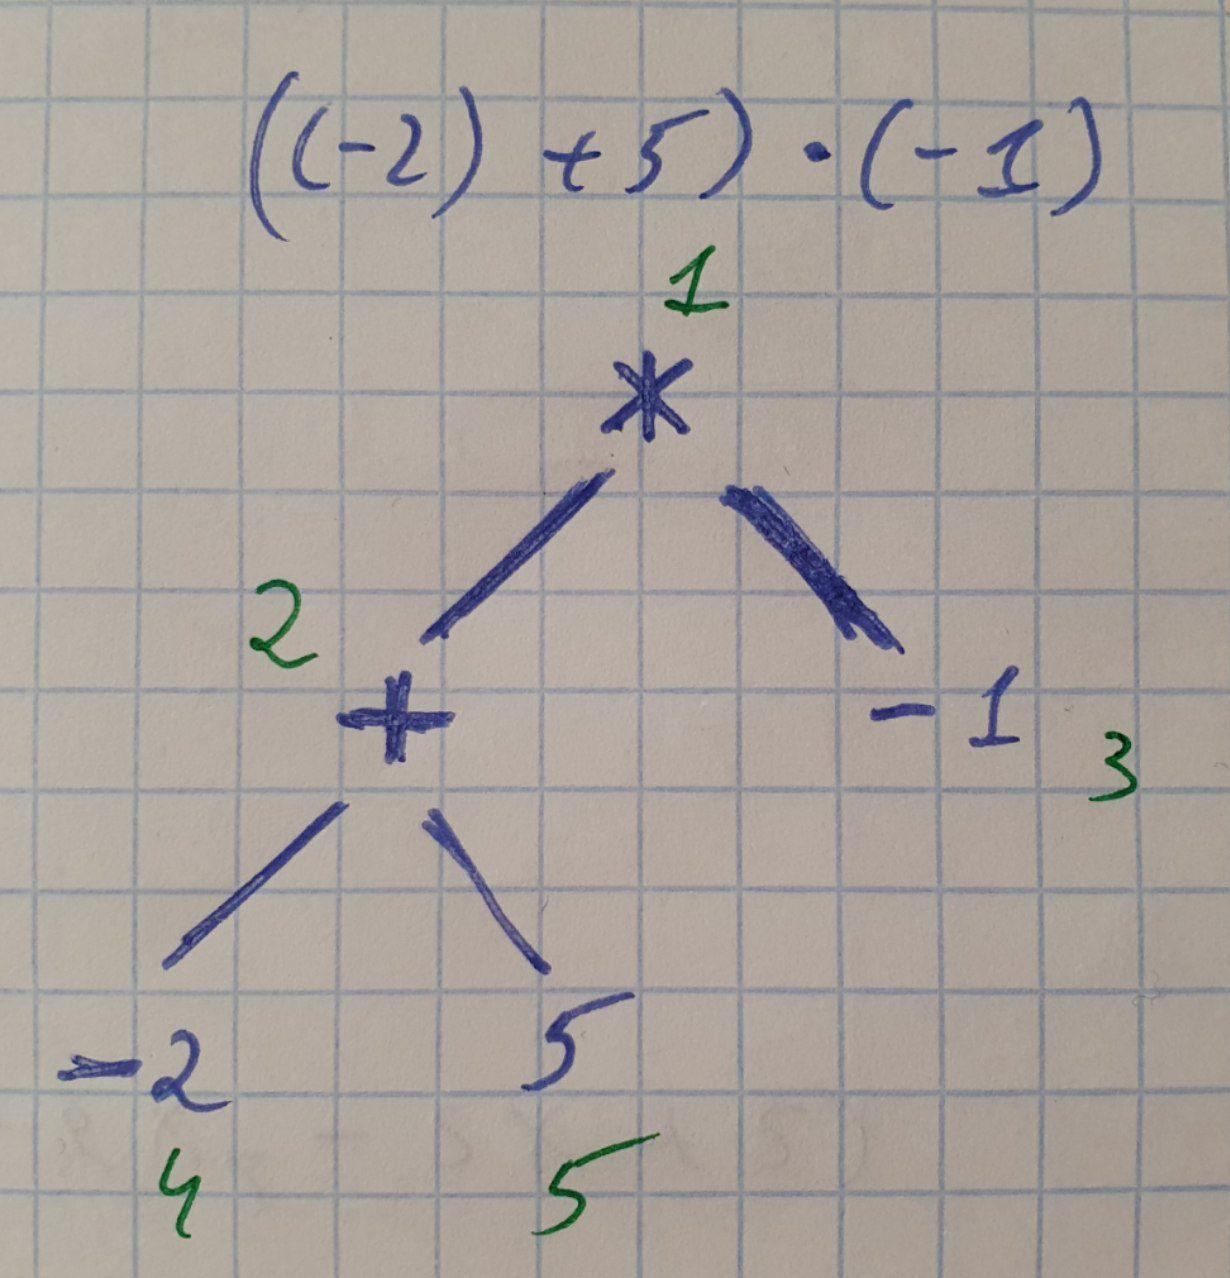 ((-2) +5) · (-1)
1
*
2
+ -1
3
-2 5
4 5